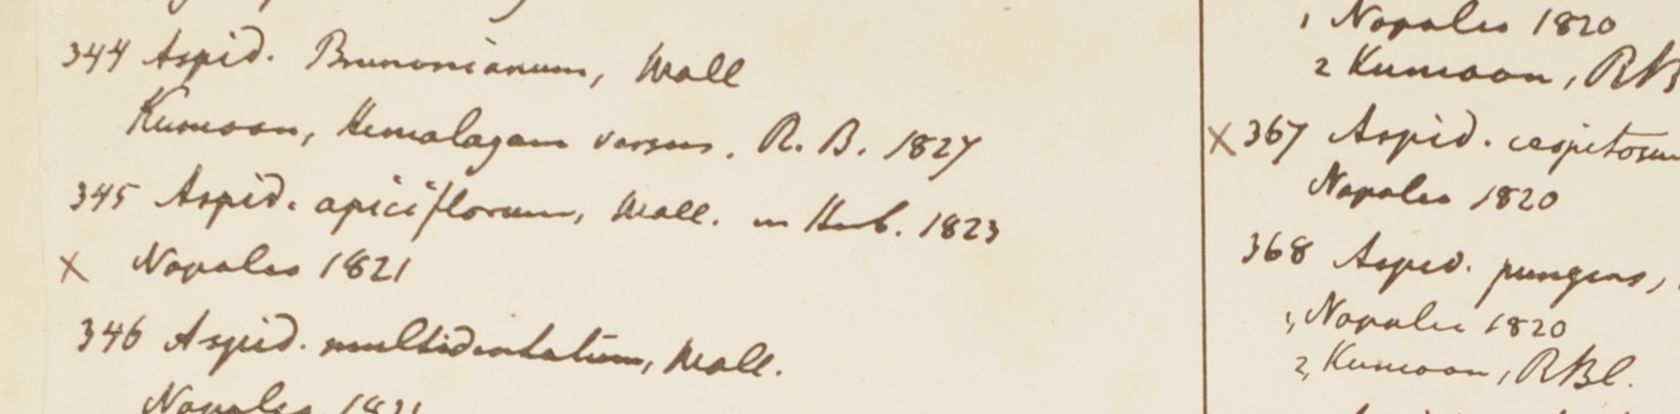 344 Aspid. Brunonianum, Wall
Kumaon, Hemalayam versus. R. B. 1827
345 Aspid. apiciflorum, Wall. in Herb. 1823
x Napalia 1821
346 Aspid. multidentatum, Wall.
Napalia 1821
1 Napalia 1820
2 Kumaon, RB
x 367 Aspid. cespitosum
Napalia 1820
368 Aspid. pungens,
1, Napalia 1820
2, Kumaon, RBl.